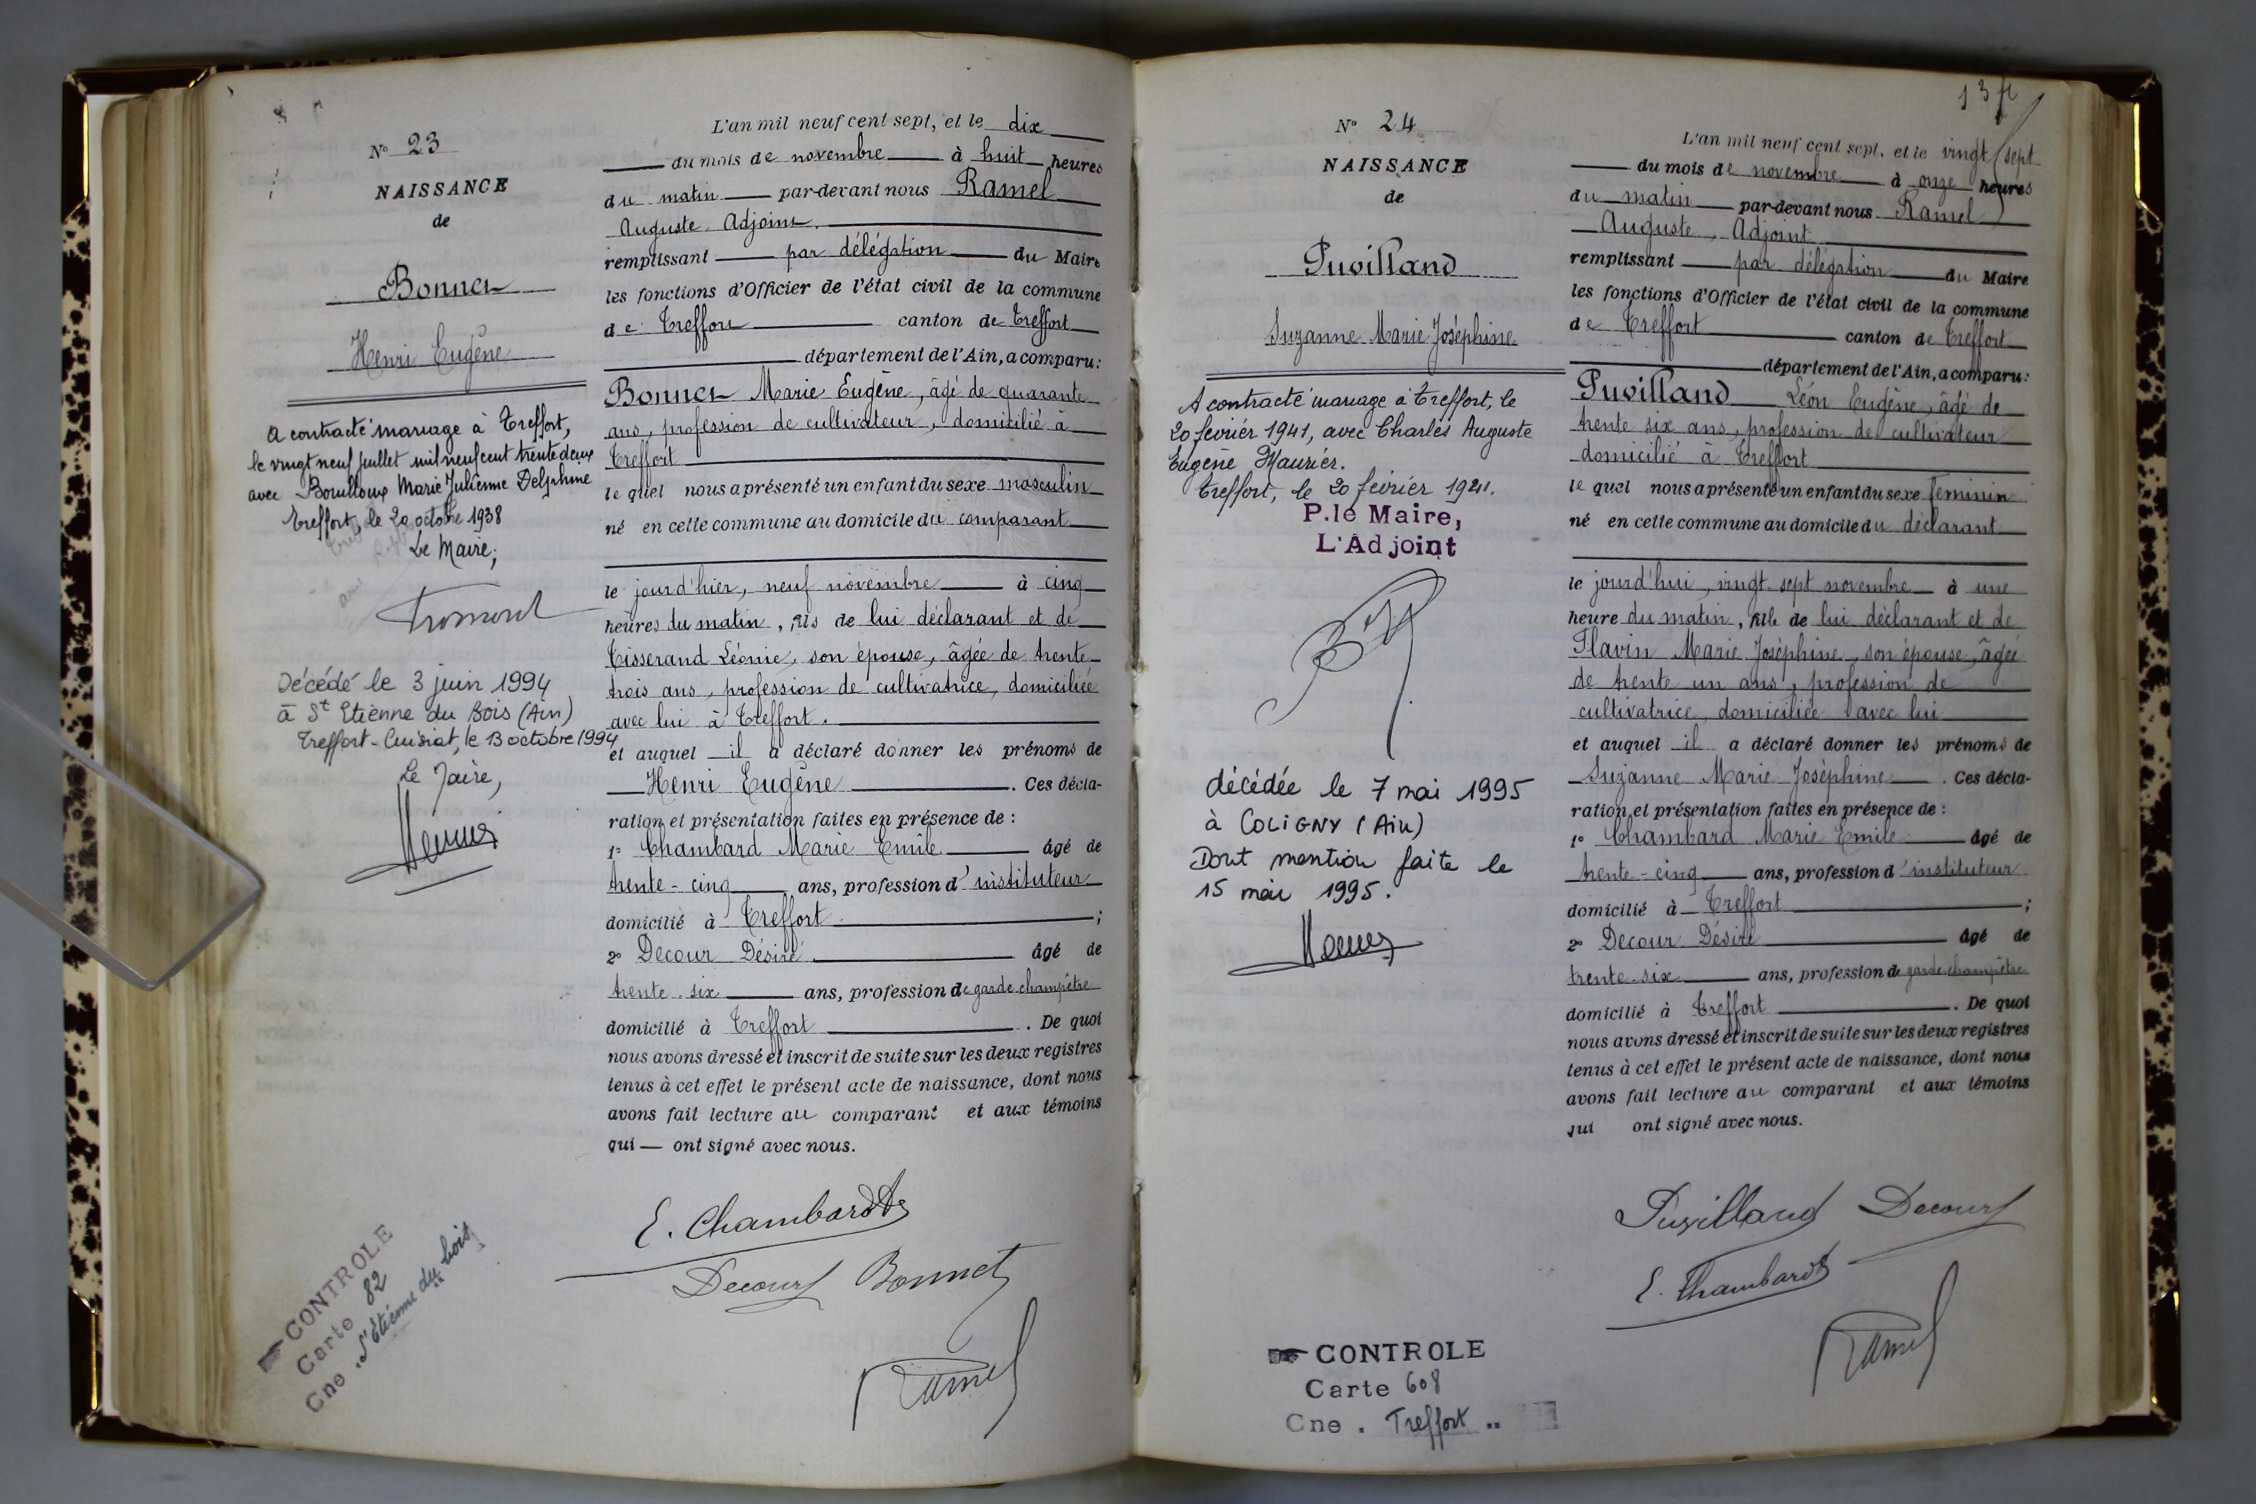 N° 23
NAISSANCE
de
Bonnet
Henri Eugène
A contracté mariage à Treffort,
le vingt neuf juillet mil neuf cent trente deux
avec Bouilloux Marie Julienne Delphine
Treffort, le 20 octobre 1938
Le Maire,
Décédé le 3 juin 1994
à St Etienne du Bois (Ain)
Treffort-Cuisiat, le 13 octobre 1994
Le Maire,
CONTROLE
Carte 82
Cne. St Etienne du bois
L'an mil neuf cent sept, et le dix
du mois de novembre à huit heures
du matin par-devant nous Ramel
Auguste Adjoint
remplissant par délégation du Maire
les fonctions d'Officier de l'état civil de la commune
de Treffort canton de Treffort
département de l'Ain, a comparu:
Bonnet Marie Eugène, âgé de quarante
ans, profession de cultivateur, domicilié à
Treffort
le quel nous a présenté un enfant du sexe masculin
né en cette commune au domicile du comparant
le jourd'hier, neuf novembre à cinq
heures du matin, fils de lui déclarant et de
Tisserand Léonie, son épouse, âgée de trente
trois ans, profession de cultivatrice, domiciliée
avec lui à Treffort.
et auquel il a déclaré donner les prénoms de
Henri Eugène. Ces décla-
ration et présentation faites en présence de:
1° Chambard Marie Emile âgé de
trente-cinq ans, profession d'instituteur
domicilié à Treffort;
2° Decour Désiré âgé de
trente-six ans, profession de garde champêtre
domicilié à Treffort. De quoi
nous avons dressé et inscrit de suite sur les deux registres
tenus à cet effet le présent acte de naissance, dont nous
avons fait lecture au comparant et aux témoins
qui — ont signé avec nous.
E. Chambard
Decour Bonnet
Ramel
N° 24
NAISSANCE
de
Puvilland
Suzanne Marie Joséphine
A contracté mariage à Treffort, le
20 février 1941, avec Charles Auguste
Eugène Maurier.
Treffort, le 20 février 1941.
P. le Maire,
L'Adjoint
décédée le 7 mai 1995
à COLIGNY (Ain)
Dont mention faite le
15 mai 1995.
CONTROLE
Carte 608
Cne. Treffort
L'an mil neuf cent sept, et le vingt sept
du mois de novembre à onze heures
du matin par-devant nous Ramel
Auguste, Adjoint
remplissant par délégation du Maire
les fonctions d'Officier de l'état civil de la commune
de Treffort canton de Treffort
département de l'Ain, a comparu:
Puvilland Léon Eugène, âgé de
trente six ans, profession de cultivateur
domicilié à Treffort
le quel nous a présenté un enfant du sexe féminin
né en cette commune au domicile du déclarant
le jourd'hui, vingt-sept novembre à une
heure du matin, fille de lui déclarant et de
Flavin Marie Joséphine, son épouse, âgée
de trente un ans, profession de
cultivatrice, domiciliée avec lui
et auquel il a déclaré donner les prénoms de
Suzanne Marie Joséphine. Ces décla-
ration et présentation faites en présence de:
1° Chambard Marie Emile âgé de
trente-cinq ans, profession d'instituteur
domicilié à Treffort;
2° Decour Désiré âgé de
trente-six ans, profession de garde champêtre
domicilié à Treffort. De quoi
nous avons dressé et inscrit de suite sur les deux registres
tenus à cet effet le présent acte de naissance, dont nous
avons fait lecture au comparant et aux témoins
qui ont signé avec nous.
Puvilland Decour
E. Chambard
Ramel